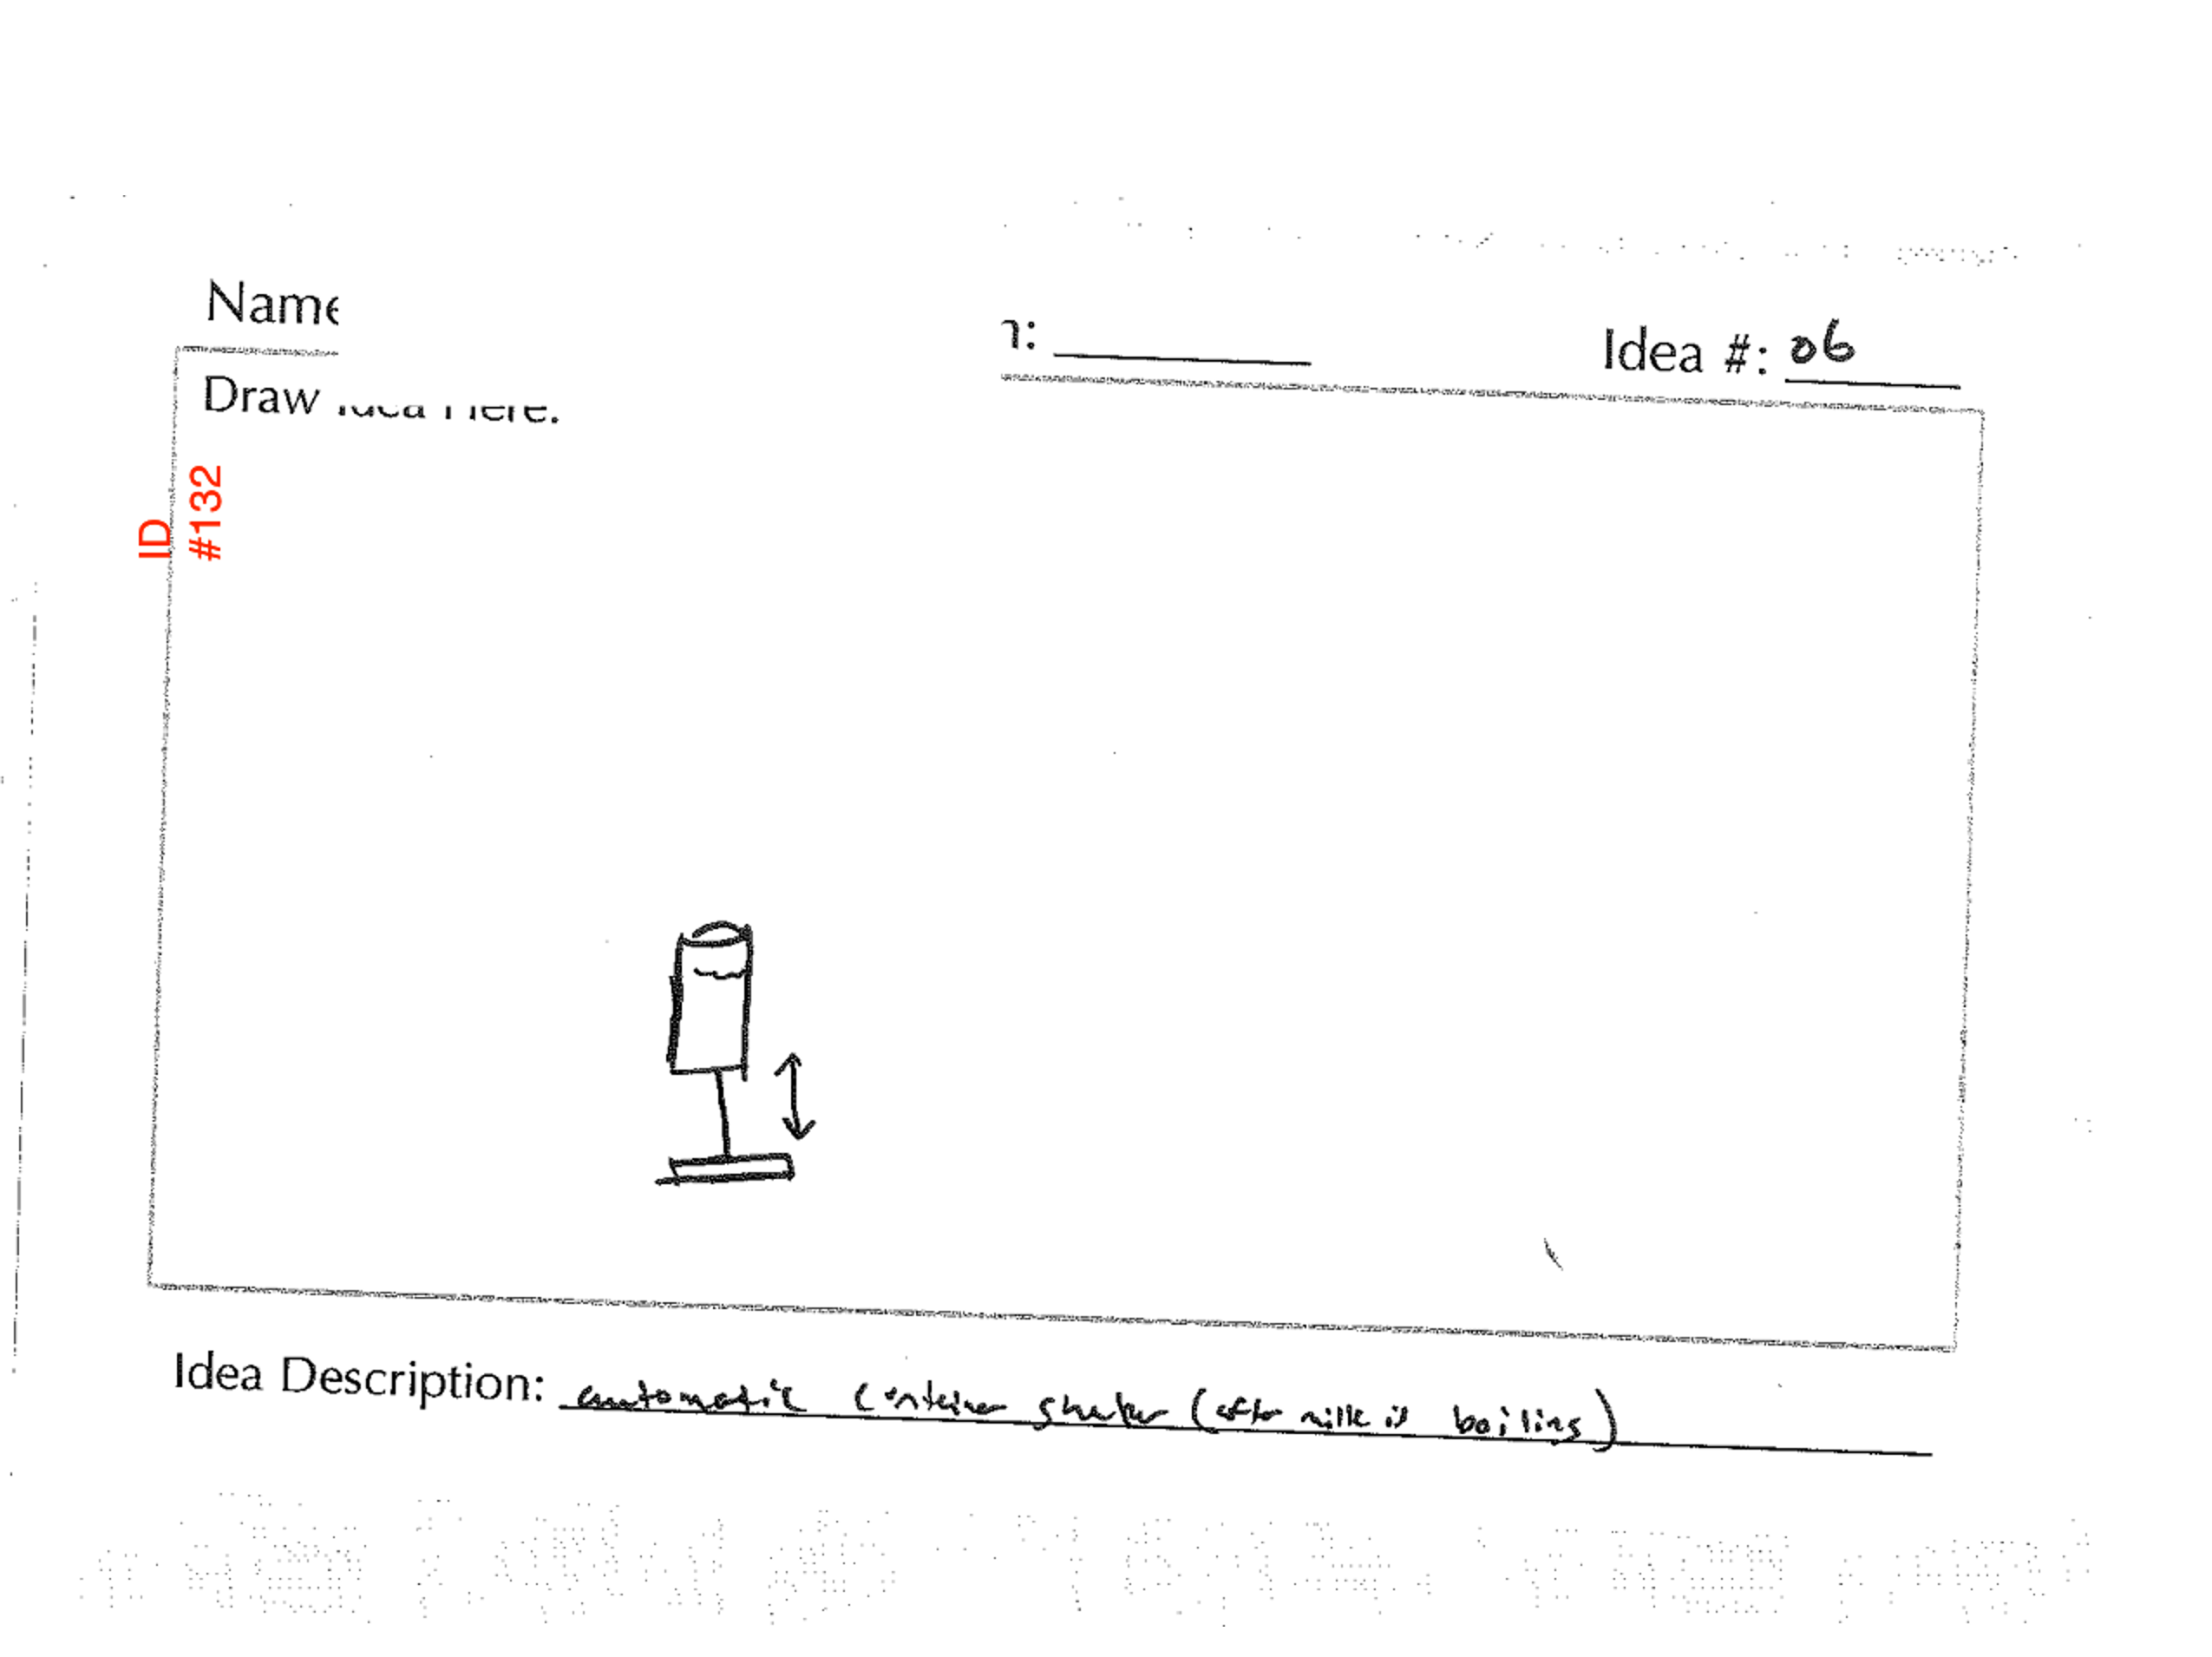 Name
n: Idea #: 06
Draw Idea Here:
ID
#132
Idea Description: automatic container shaker (after milk is boiling)